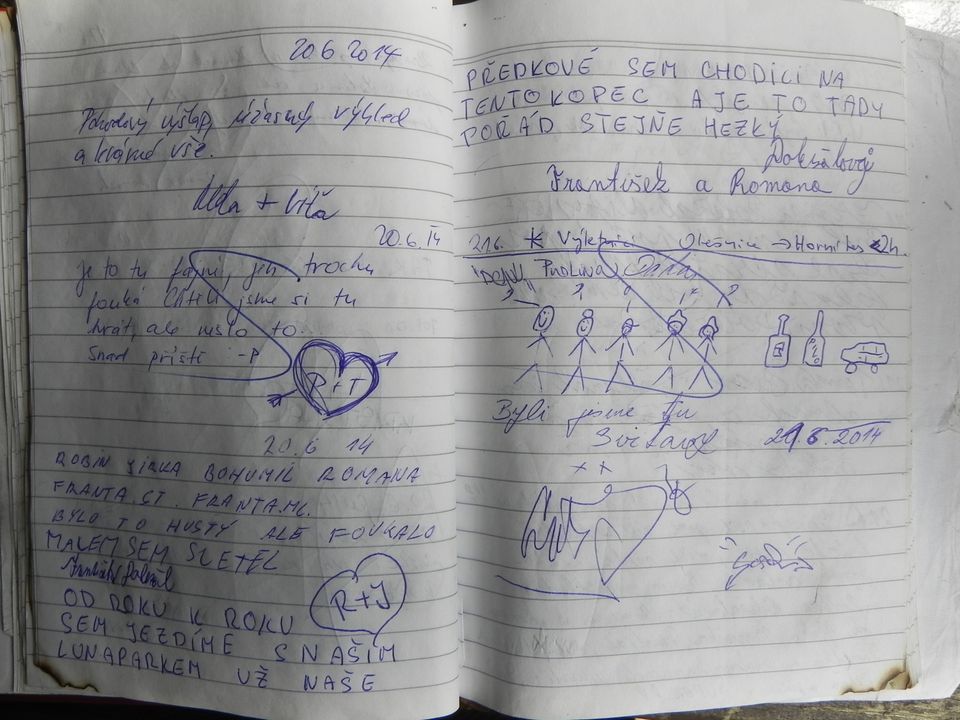 20.6.2014
Pohodový výšlap, úžasný výhled
a krásné vše.
+ Víťa
20.6.14
je to tu fajni, jen trochu
fouká Chtěli jsme si tu
hrát, ale nešlo to.
Snad příště -P
R+T
20.6 14
ROBIN JIRKA BOHUMIL ROMANA
FRANTA.ST. FRANTA.ML.
BYLO TO HUSTÝ ALE FOUKALO
MALEM SEM SLETEL
R+J
OD ROKU K ROKU
SEM JEZDÍME S NAŠÍM
LUNAPARKEM UŽ NAŠE
PŘEDKOVÉ SEM CHODÍCI NA
TENTO KOPEC A JE TO TADY
POŘÁD STEJŇE HEZKÝ
František a Romana
21.6. Výletníci Olešnice → Horní les 2h.
Byli jsme tu
21.6.2014